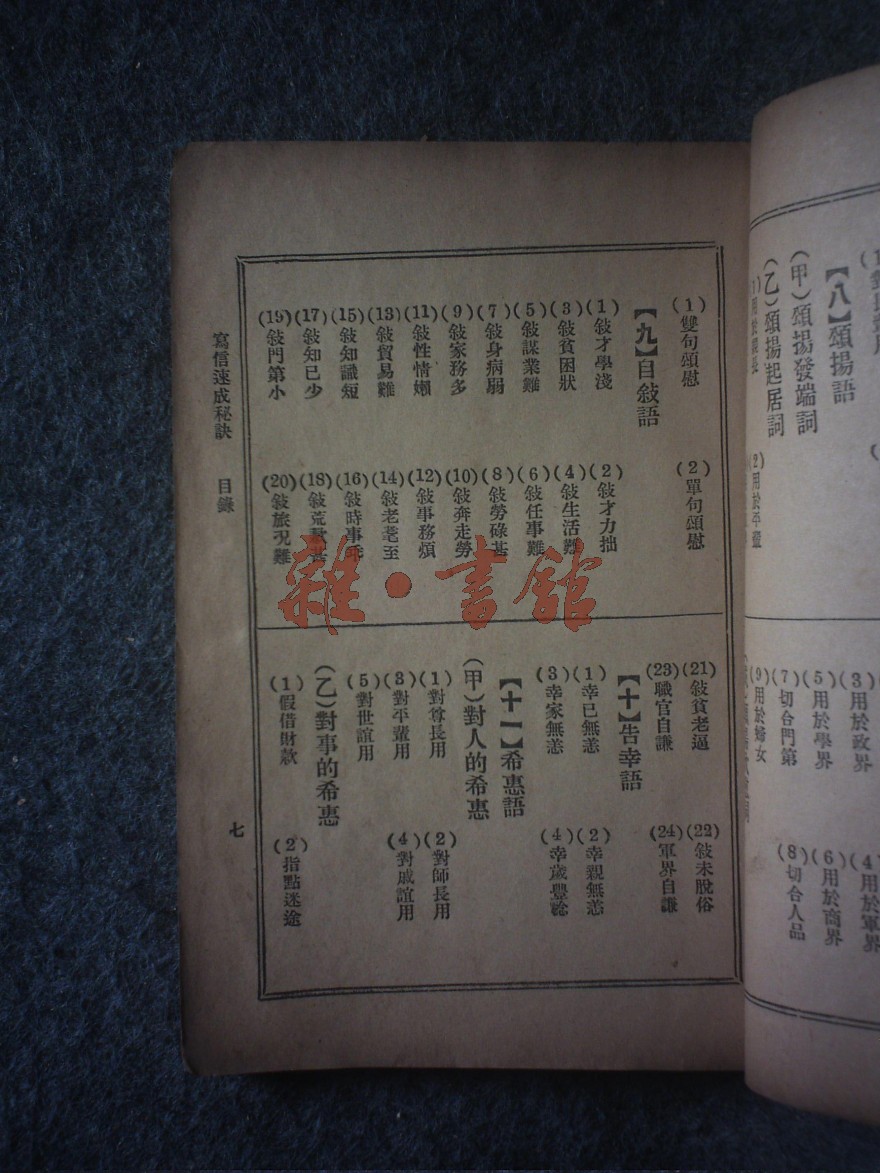 【八】頌揚語
(甲)頌揚發端詞
(乙)頌揚起居詞
(2)用於平輩
(3)用於政界
(4)用於軍界
(5)用於學界
(6)用於商界
(7)切合門第
(8)切合人品
(9)用於婦女
(1)雙句頌慰
(2)單句頌慰
【九】自敍語
(1)敍才學淺
(2)敍才力拙
(3)敍貧困狀
(4)敍生活難
(5)敍謀業難
(6)敍任事難
(7)敍身病弱
(8)敍勞碌甚
(9)敍家務多
(10)敍奔走勞
(11)敍性情懶
(12)敍事務煩
(13)敍貿易難
(14)敍老耄至
(15)敍知識短
(16)敍時事乖
(17)敍知己少
(18)敍荒歉甚
(19)敍門第小
(20)敍旅況難
(21)敍貧老逼
(22)敍未脫俗
(23)職官自謙
(24)軍界自謙
【十】告幸語
(1)幸已無恙
(2)幸親無恙
(3)幸家無恙
(4)幸歲豐稔
【十一】希惠語
(甲)對人的希惠
(1)對尊長用
(2)對師長用
(3)對平輩用
(4)對戚誼用
(5)對世誼用
(乙)對事的希惠
(1)假借財款
(2)指點迷途
寫信速成秘訣 目錄
七
雜·書館